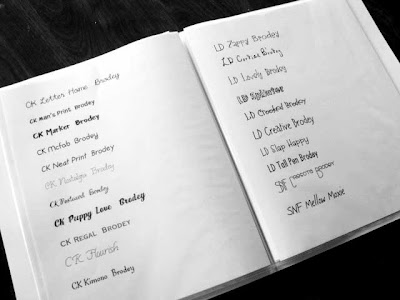 CK Letter Home Brodey
CK Man's Print Brodey
CK Marker Brodey
CK McFab Brodey
CK Neat Print Brodey
CK Nostalgia Brodey
CK Postcard Brodey
CK Puppy Love Brodey
CK REGAL BRODEY
CK Flourish
CK Kimono Brodey
LD Zappy Brodey
LD Brodey
LD Lovely Brodey
LD
LD Crooked Brodey
LD Creative Brodey
LD Slap Happy
LD Tall Pen Brodey
SNF BRODEY
SNF Mellow Moxie